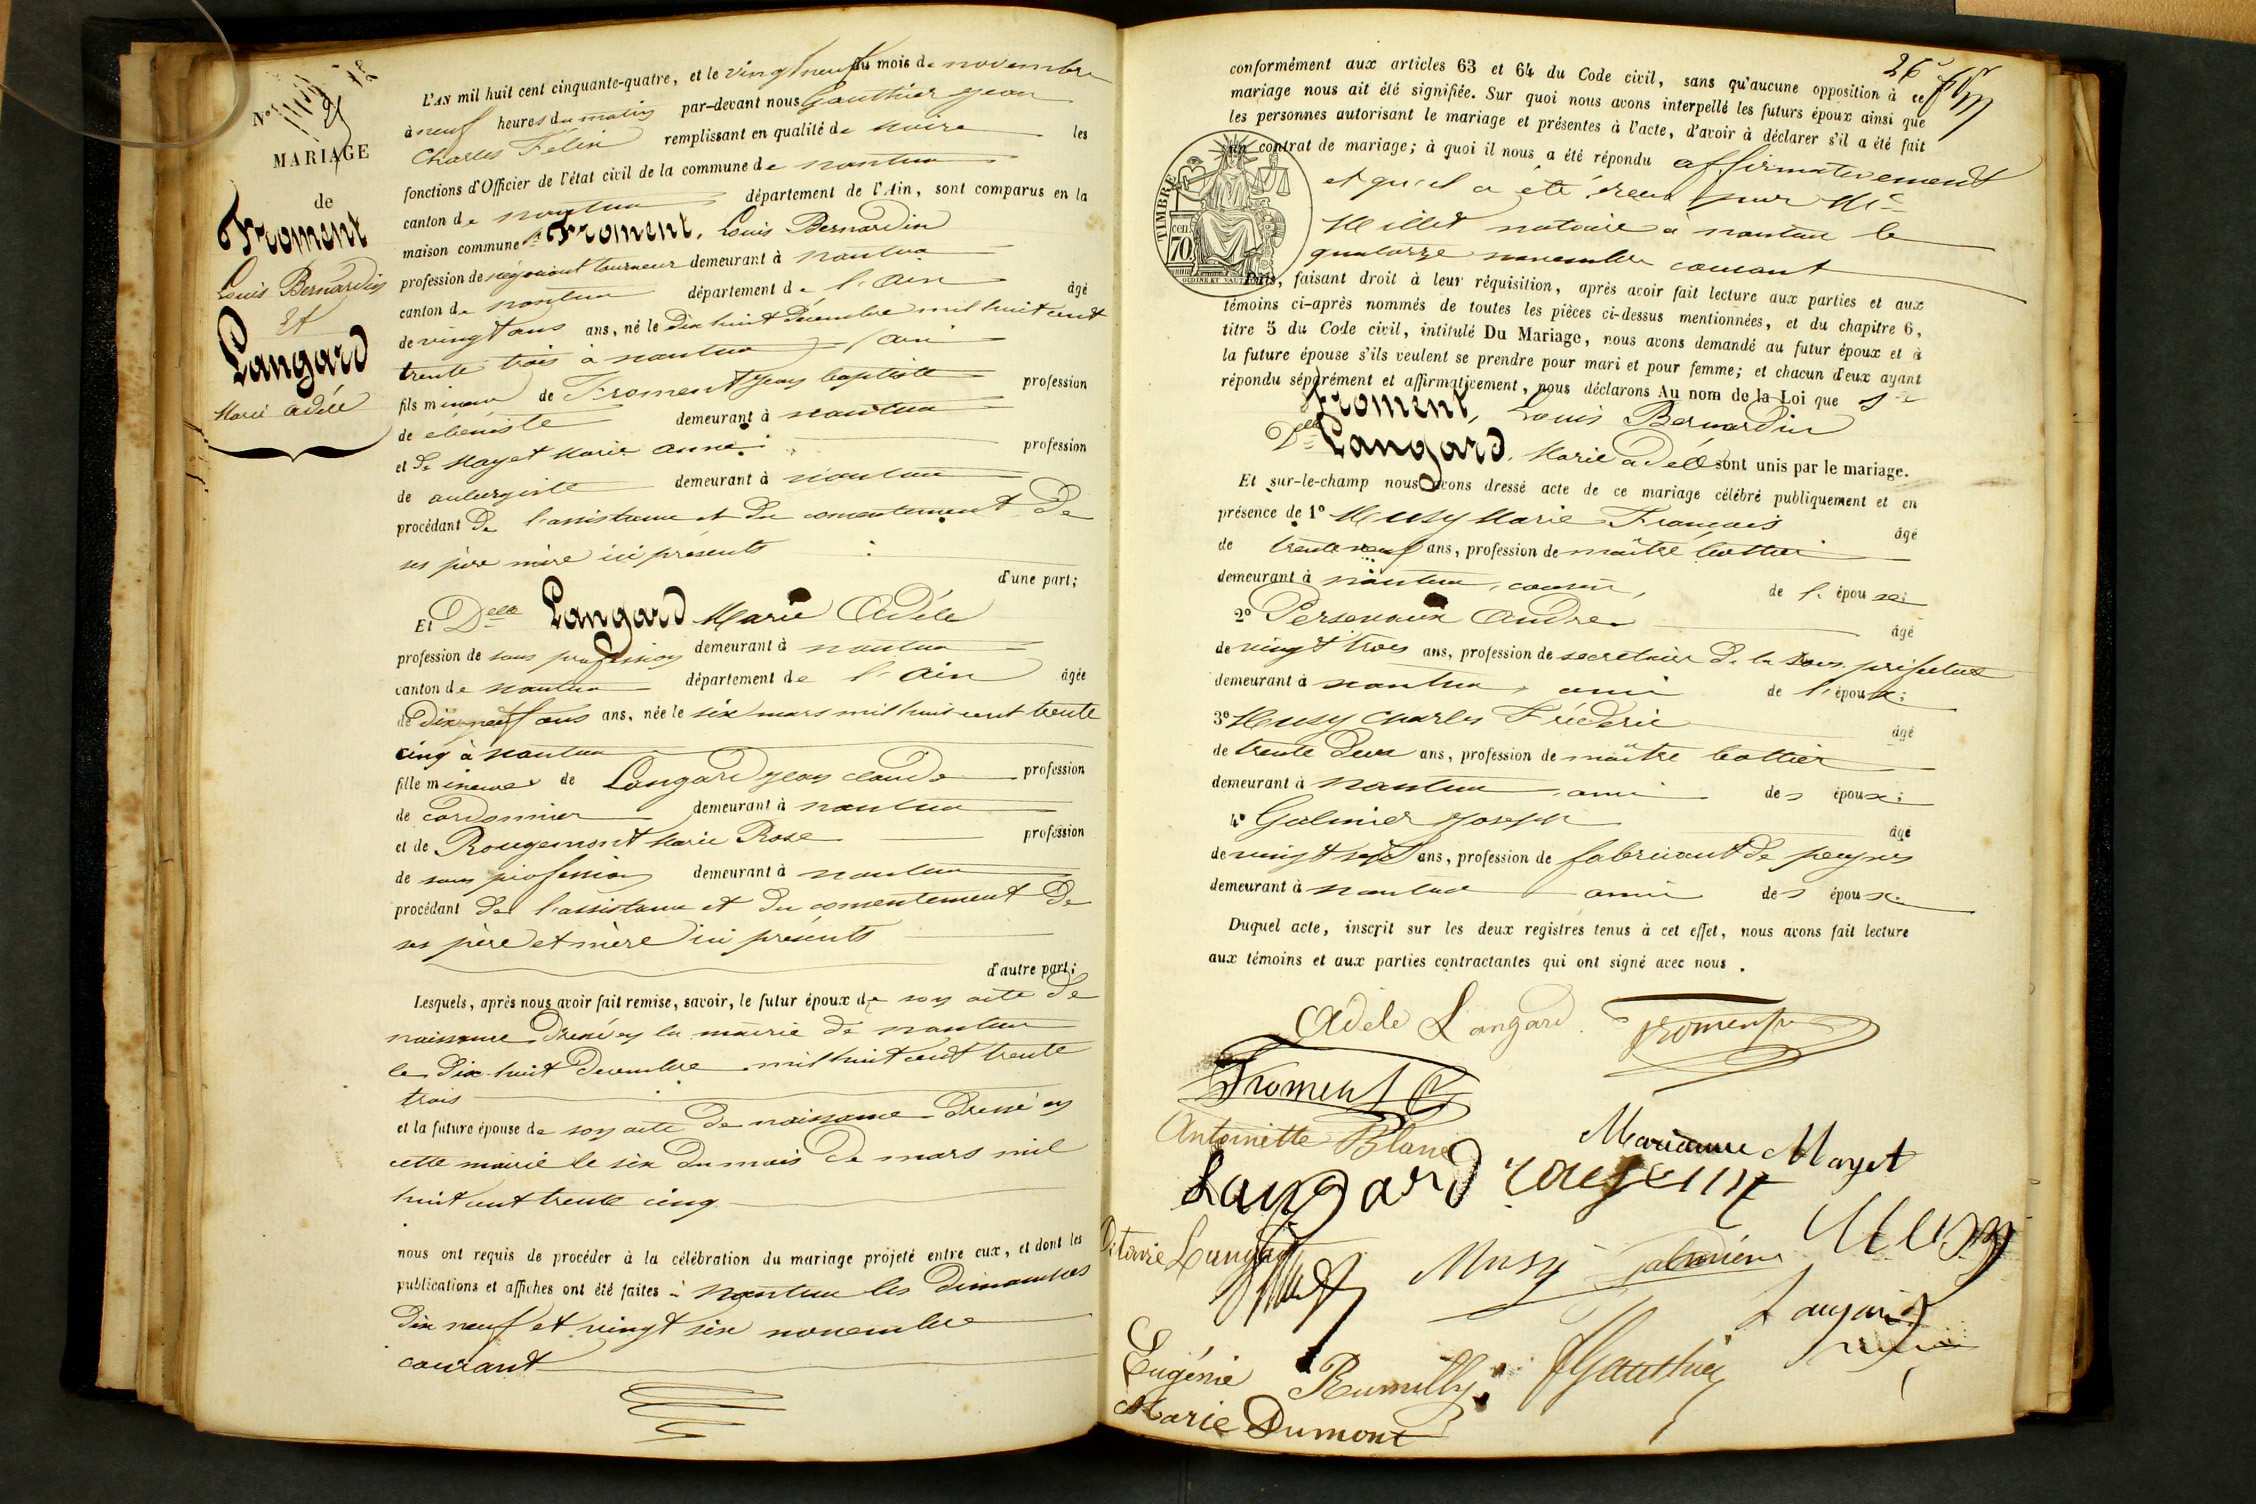 N°
MARIAGE
de
Froment
Louis Bernardin
Et
Langard
Marie Adèle
L'AN mil huit cent cinquante-quatre, et le vingt neuf du mois de novembre
à neuf heures du matin par-devant nous Gauthier Jean
Charles Félix remplissant en qualité de Maire les
fonctions d'Officier de l'état civil de la commune de nantua
canton de nantua département de l'Ain, sont comparus en la
maison commune Sr Froment, Louis Bernardin
profession de négociant tourneur demeurant à nantua
canton de nantua département de l'Ain âgé
de vingt ans ans, né le dix huit Décembre mil huit cent
trente trois à nantua (ain
fils mineur de Froment Jean baptiste profession
de ébéniste demeurant à nantua
et de Mayet Marie Anne profession
de aubergiste demeurant à nantua
procédant De l'assistance et du consentement De
ses père mère ici présents
d'une part;
Et Delle Langard Marie Adèle
profession de sans profession demeurant à nantua
canton de nantua département de l'Ain âgée
de Dix neuf ans ans, née le six mars mil huit cent trente
cinq à nantua
fille mineure de Langard jean claude profession
de cordonnier demeurant à nantua
et de Rougemont Marie Rose profession
de sans profession demeurant à nantua
procédant De l'assistance et du consentement De
ses père et mère ici présents
d'autre part;
Lesquels, après nous avoir fait remise, savoir, le futur époux de son acte de
naissance Dressé en la mairie de nantua
le Dix huit Decembre mil huit cent trente
trois
et la future épouse de son acte De naissance Dressé en
cette mairie le six du mois De mars mil
huit cent trente cinq
nous ont requis de procéder à la célébration du mariage projeté entre eux, et dont les
publications et affiches ont été faites à Nantua les Dimanches
Dix neuf et vingt six novembre
courant
26
conformément aux articles 63 et 64 du Code civil, sans qu'aucune opposition à ce
mariage nous ait été signifiée. Sur quoi nous avons interpellé les futurs époux ainsi que
les personnes autorisant le mariage et présentes à l'acte, d'avoir à déclarer s'il a été fait
un contrat de mariage; à quoi il nous a été répondu affirmativement
et qu'il a été reçu par Me
Millet notaire à nantua le
quatorze novembre courant
TIMBRE
cen.
70
Puis, faisant droit à leur réquisition, après avoir fait lecture aux parties et aux
témoins ci-après nommés de toutes les pièces ci-dessus mentionnées, et du chapitre 6,
titre 5 du Code civil, intitulé Du Mariage, nous avons demandé au futur époux et à
la future épouse s'ils veulent se prendre pour mari et pour femme; et chacun d'eux ayant
répondu séparément et affirmativement, nous déclarons Au nom de la Loi que Sr
Froment, Louis Bernardin
Delle Langard, Marie adèle sont unis par le mariage.
Et sur-le-champ nous avons dressé acte de ce mariage célébré publiquement et en
présence de 1° Musy Marie François âgé
de trente neuf ans, profession de maître bottier
demeurant à nantua, cousin, de l' épouse;
2° Andre âgé
de vingt trois ans, profession de secrétaire De la Sous préfecture
demeurant à nantua, ami de l'époux;
3° Musy Charles Fréderic âgé
de trente Deux ans, profession de maître bottier
demeurant à nantua, ami des époux;
4° Galinier Joseph âgé
de vingt sept ans, profession de fabricant de peignes
demeurant à nantua ami des époux.
Duquel acte, inscrit sur les deux registres tenus à cet effet, nous avons fait lecture
aux témoins et aux parties contractantes qui ont signé avec nous.
Adele Langard. Froment
Froment
Antoinette Blanc Marianne Mayet
Langard rougemont
Langard Musy Galinier Musy
Langard
Eugénie Rumilly Gauthier
Marie Dumont